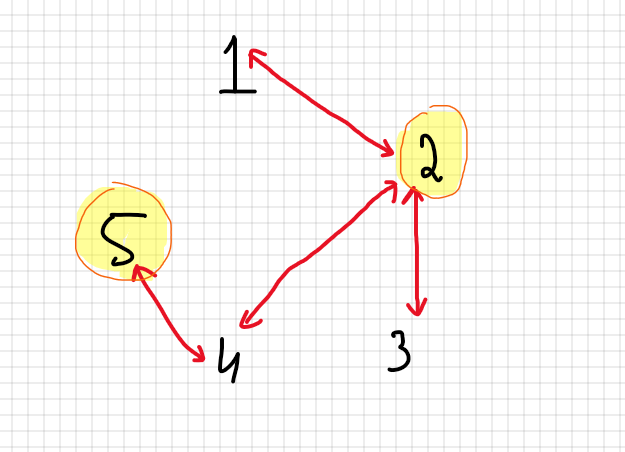 1
2
5
4
3